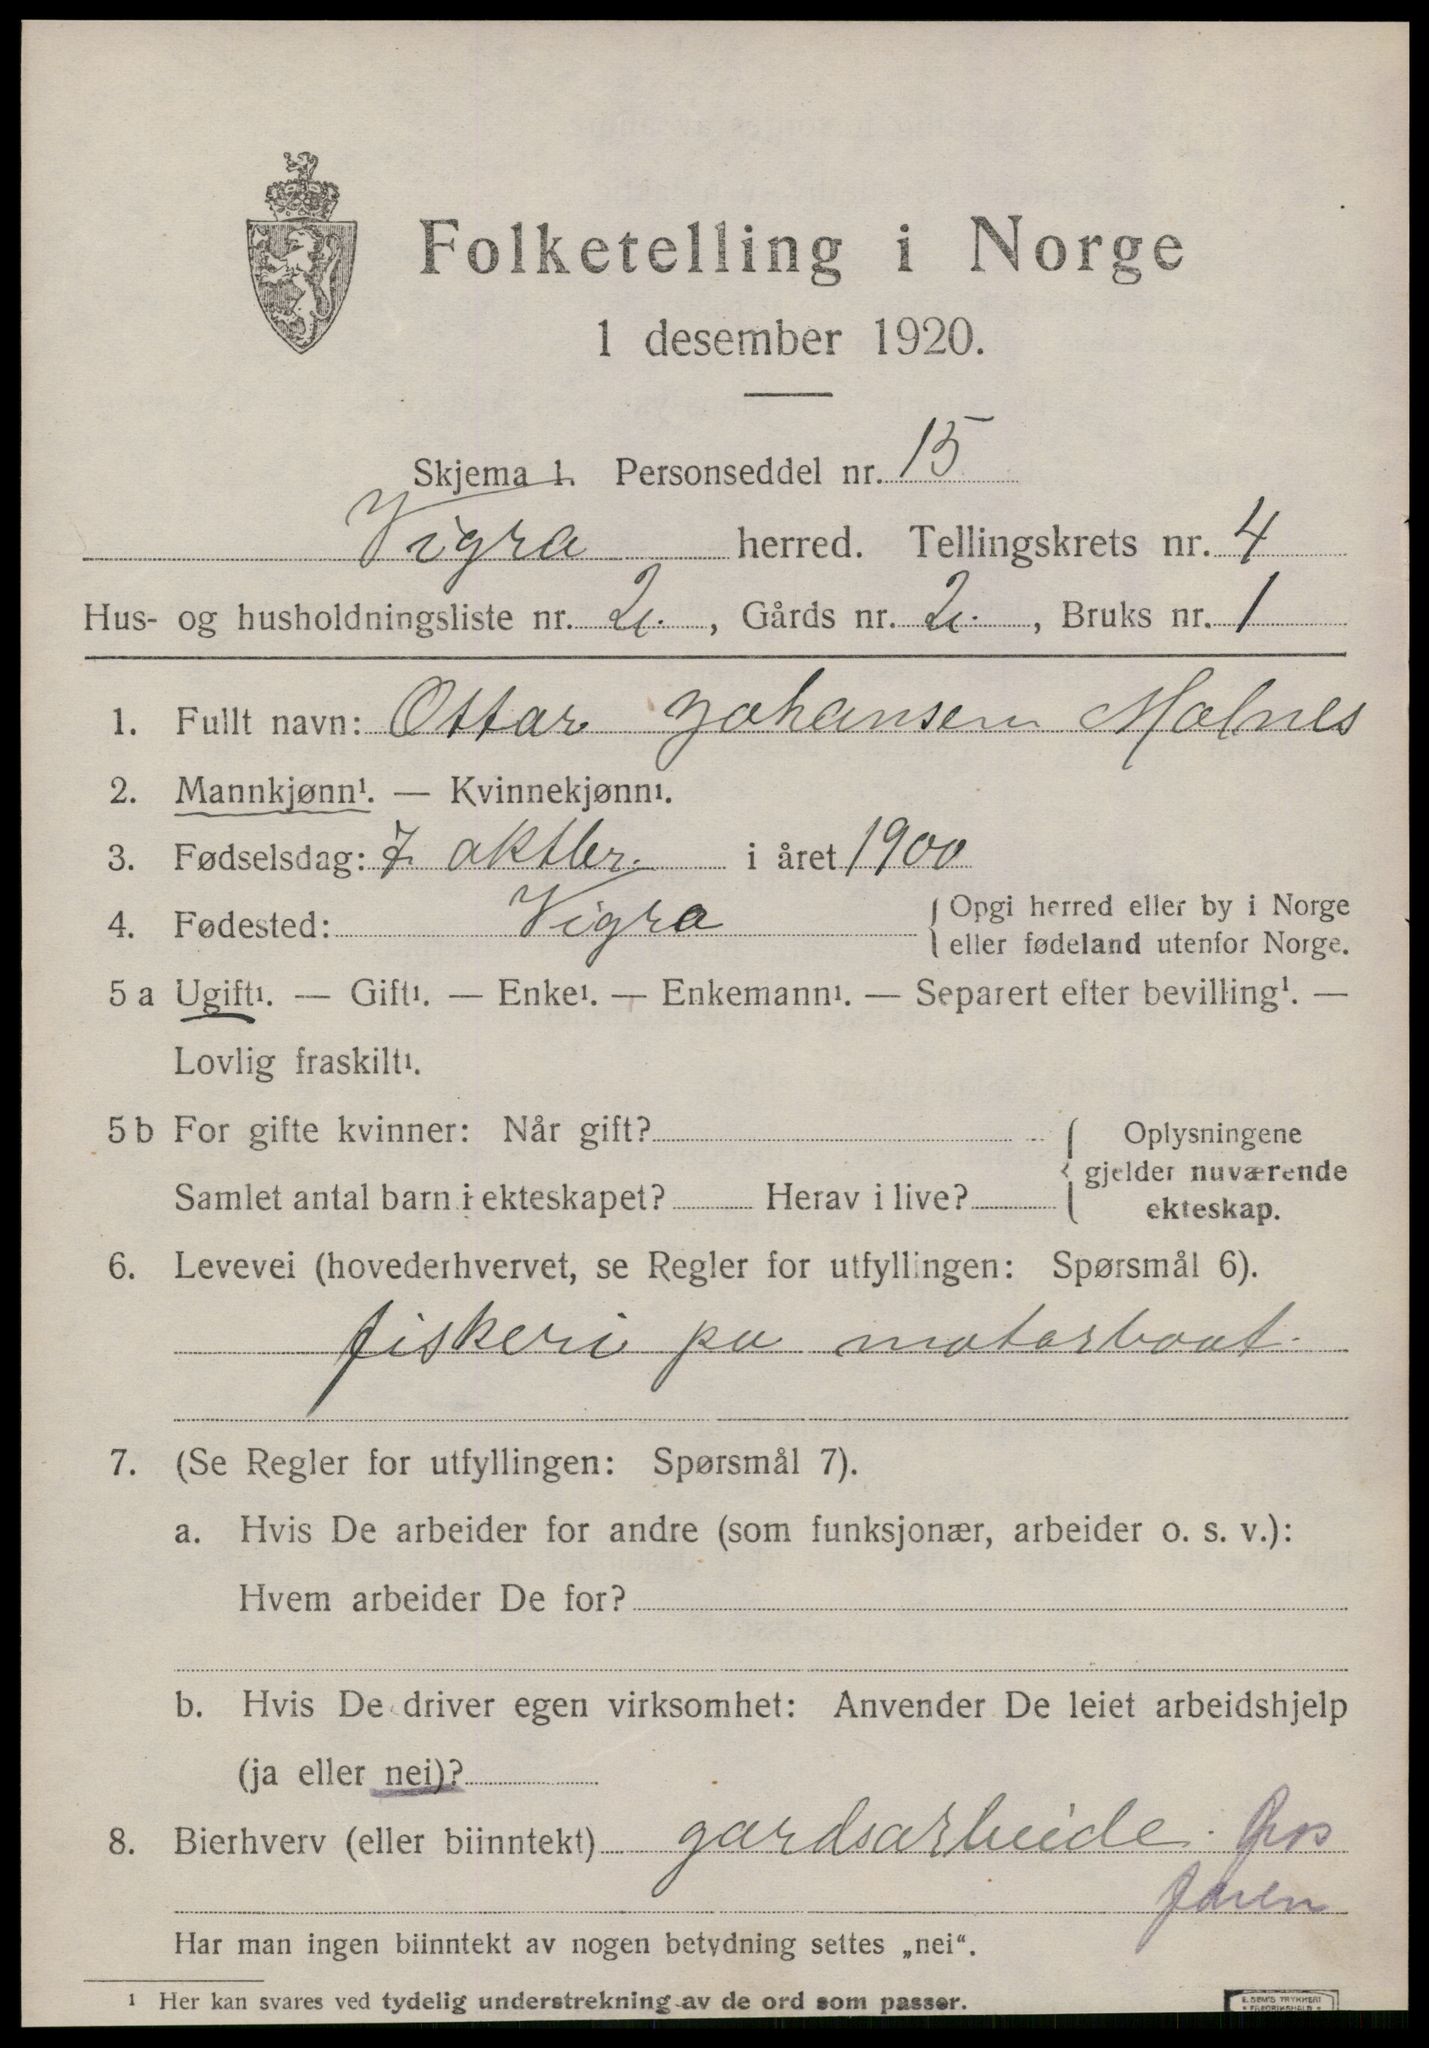 Folketelling i Norge
1 desember 1920.
Skjema 1. Personseddel nr. 15
Vigra herred. Tellingskrets nr. 4
Hus- og husholdningsliste nr. 2. , Gårds nr. 2. , Bruks nr. 1
1. Fullt navn: Ottar Johansen Molnes
2. Mannkjønn¹. — Kvinnekjønn¹.
3. Fødselsdag: 7 oktbr. i året 1900
4. Fødested: Vigra { Opgi herred eller by i Norge
eller fødeland utenfor Norge.
5 a Ugift¹. — Gift¹. — Enke¹. — Enkemann¹. — Separert efter bevilling¹. —
Lovlig fraskilt¹.
5 b For gifte kvinner: Når gift? { Oplysningene
gjelder nuværende
Samlet antal barn i ekteskapet? Herav i live? ekteskap.
6. Levevei (hovederhvervet, se Regler for utfyllingen: Spørsmål 6).
fiskeri pa motorboat.
7. (Se Regler for utfyllingen: Spørsmål 7).
a. Hvis De arbeider for andre (som funksjonær, arbeider o. s. v.):
Hvem arbeider De for?
b. Hvis De driver egen virksomhet: Anvender De leiet arbeidshjelp
(ja eller nei)?
8. Bierhverv (eller biinntekt) gardsarbeide. hos
faren
Har man ingen biinntekt av nogen betydning settes „nei“.
¹ Her kan svares ved tydelig understrekning av de ord som passer.
E. SEM'S TRYKKERI
FREDRIKSHALD